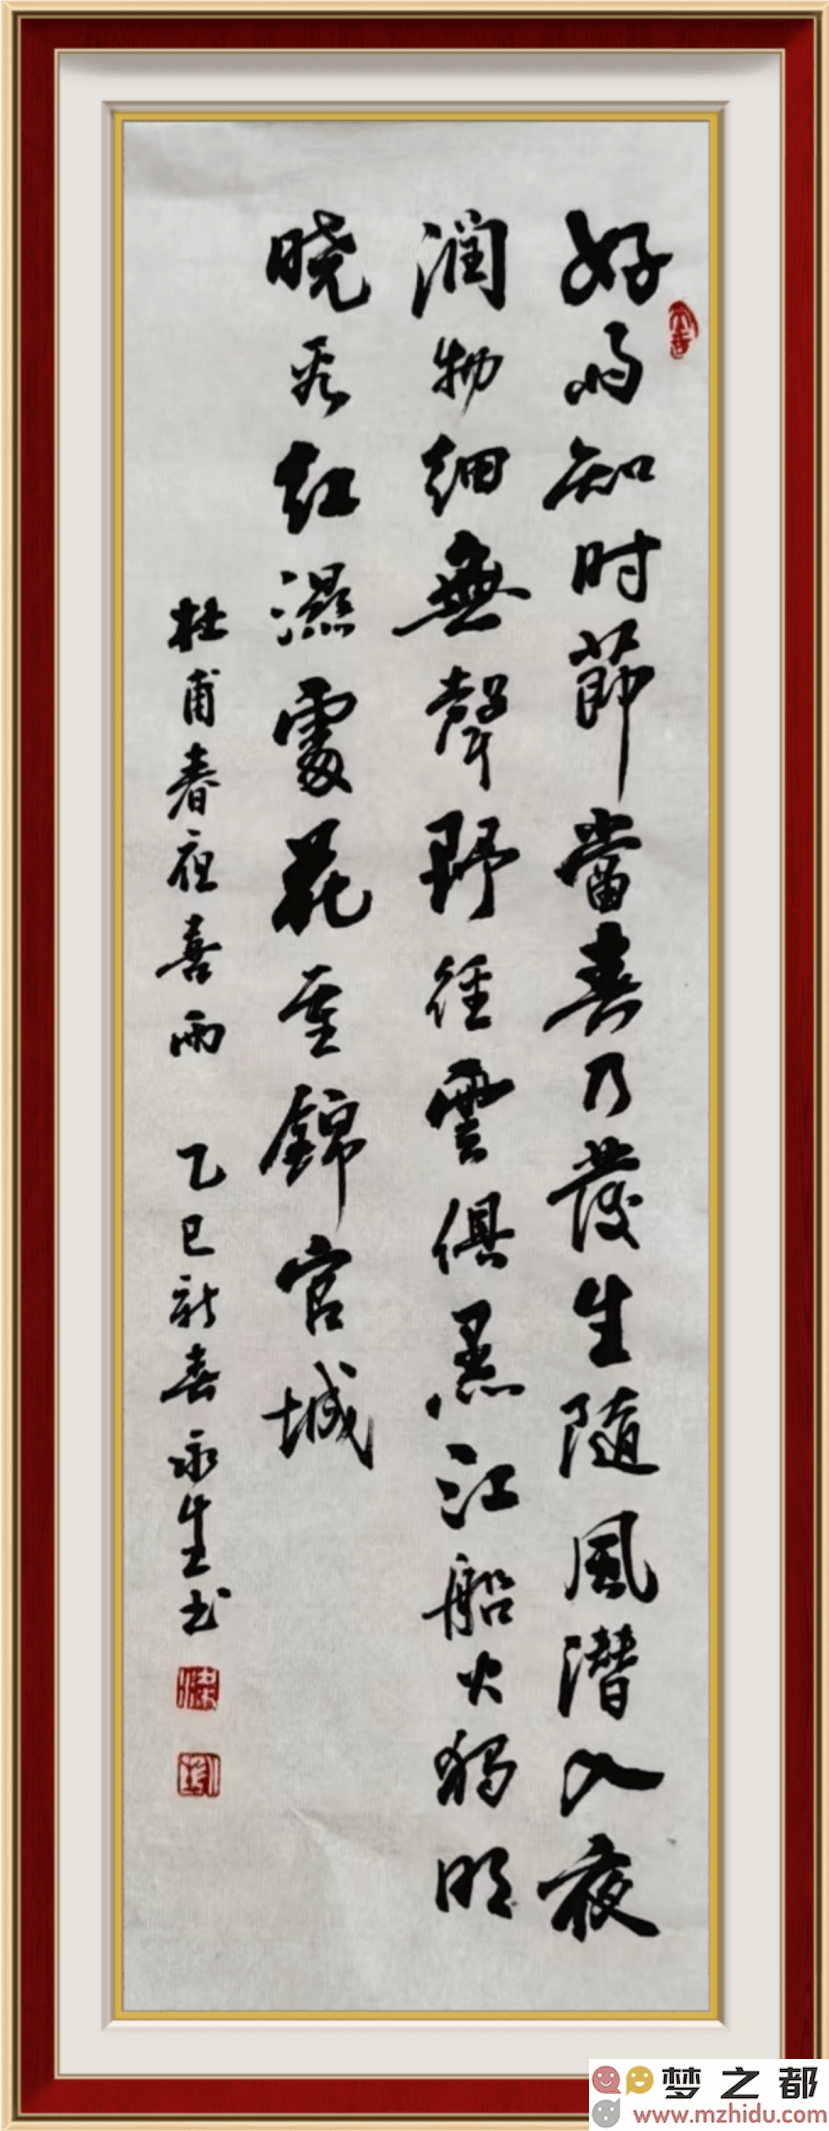 好雨知时節當春乃發生随風潜入夜
润物细無聲野径雲俱黑江船火獨明
晓看红濕處花重錦官城
杜甫春夜喜雨 乙巳新春永生书
梦之都
www.mzhidu.com